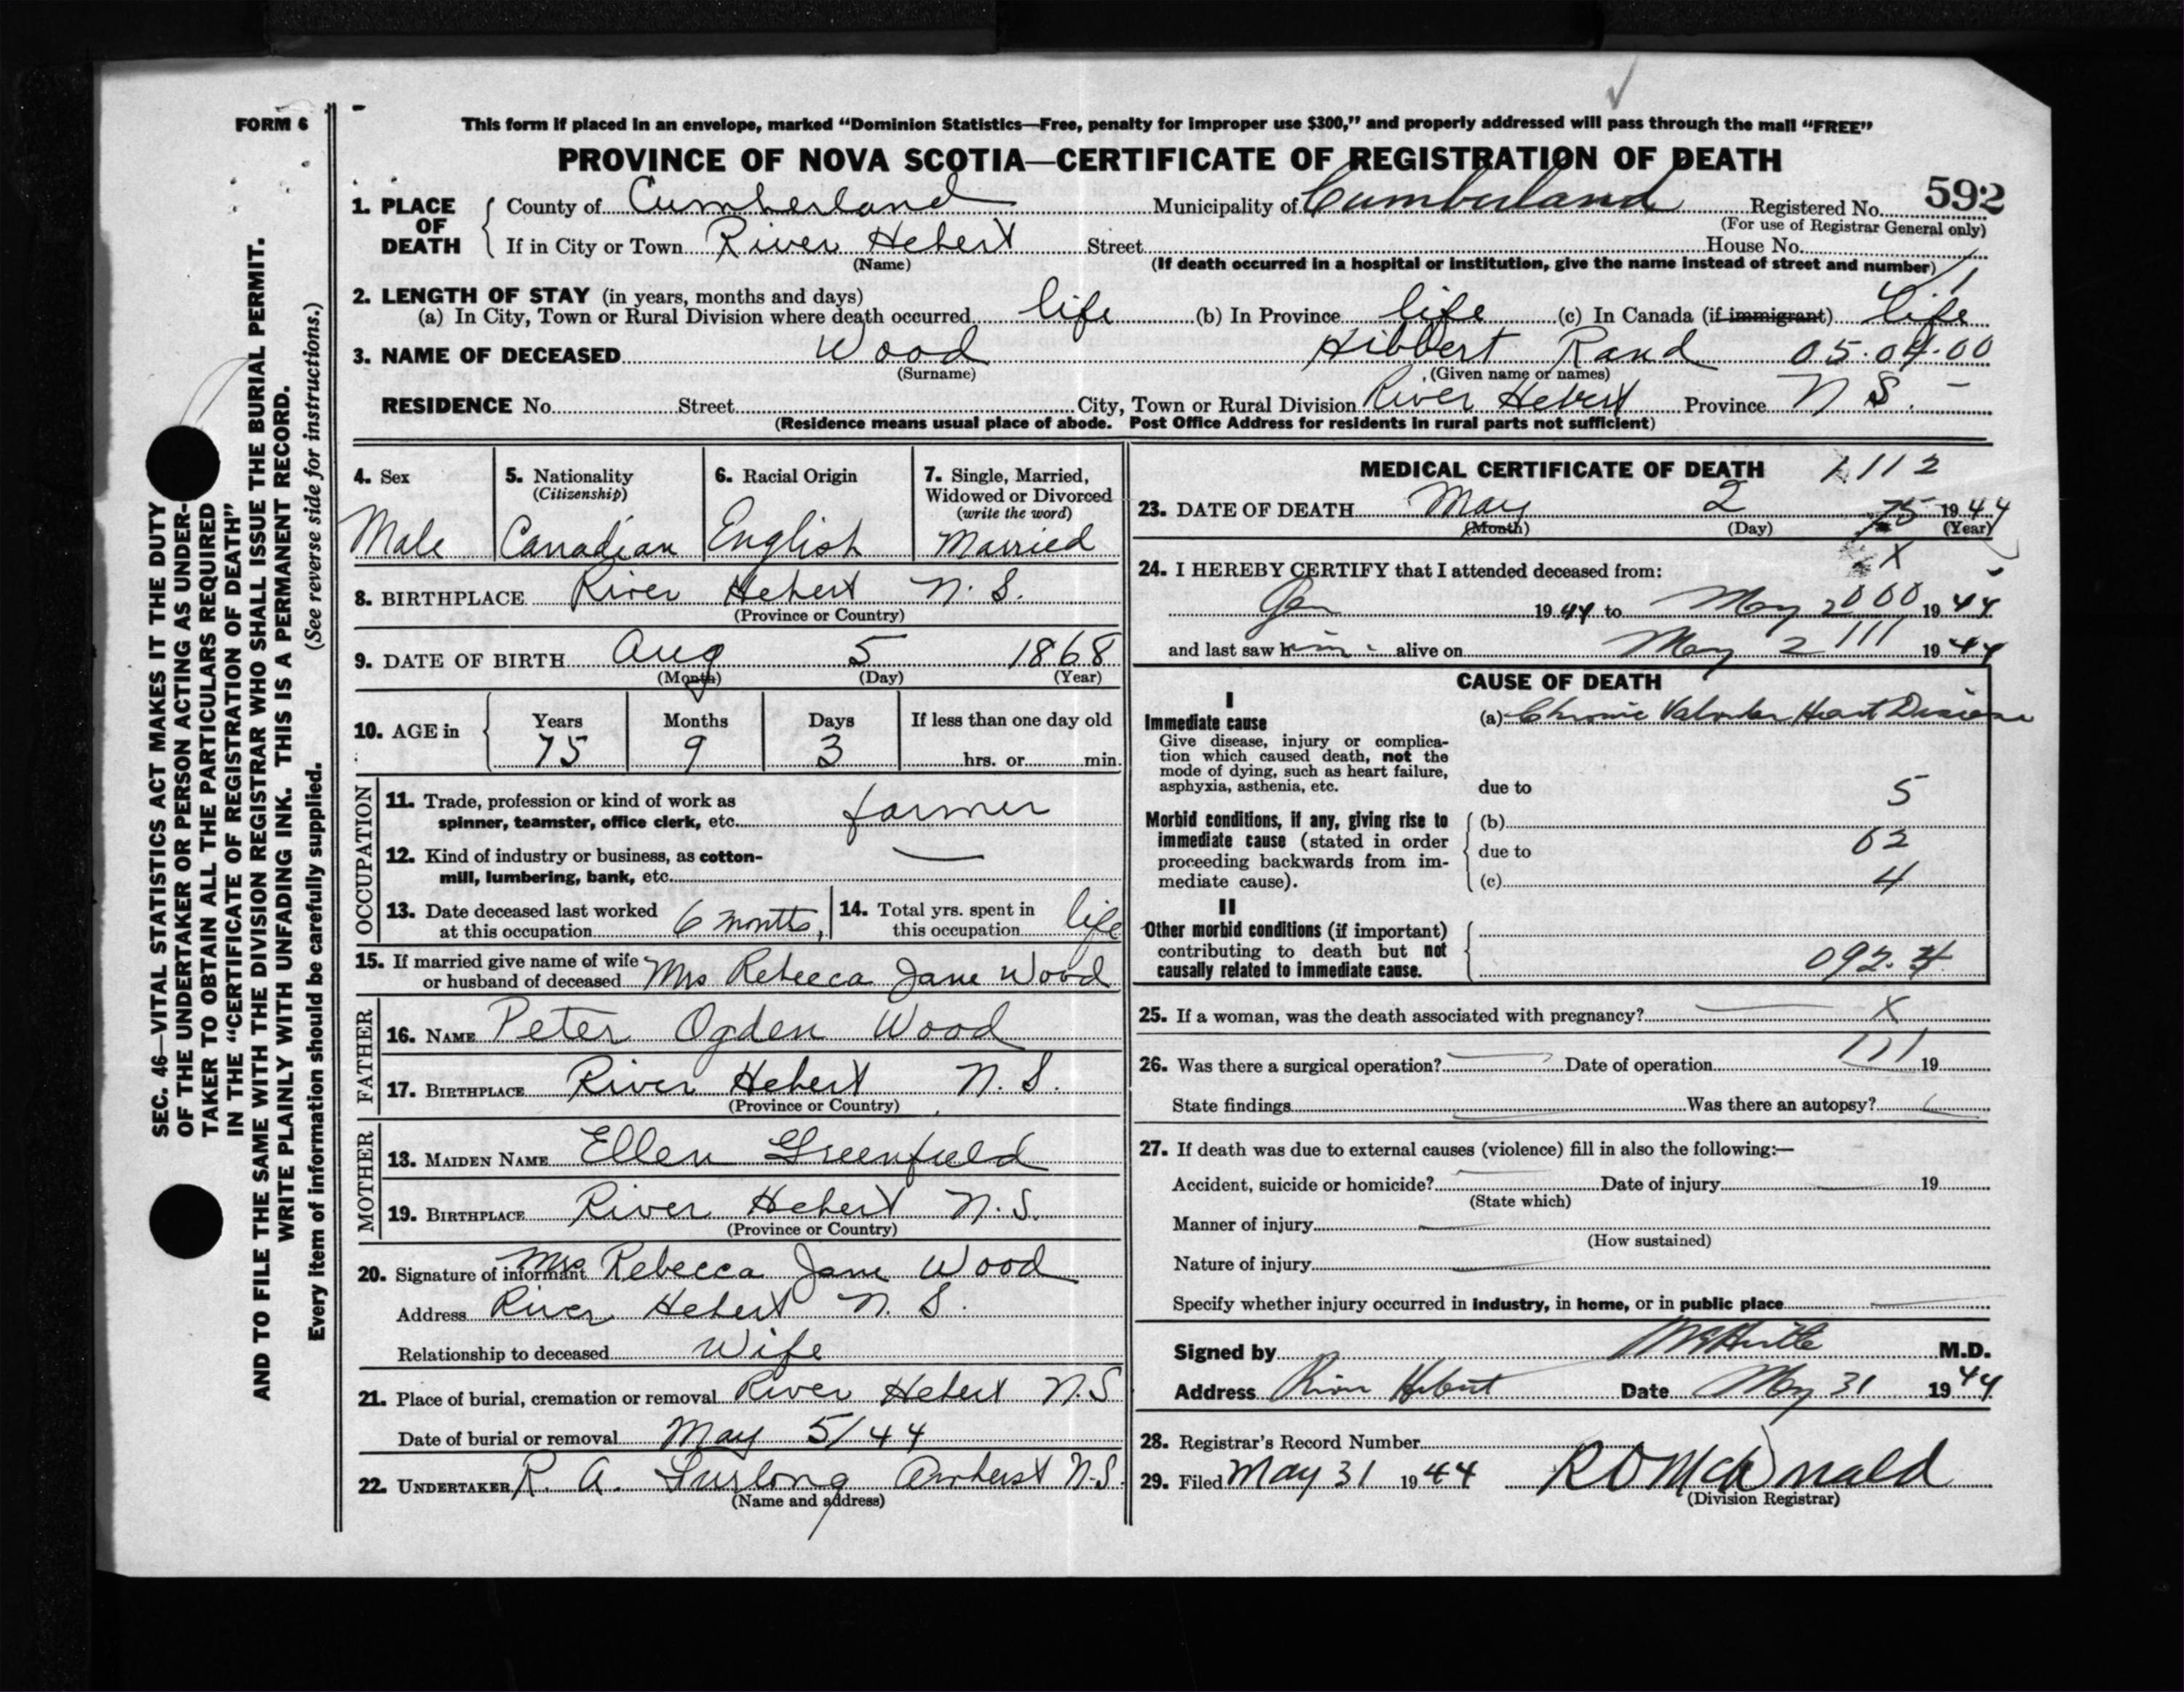 FORM 6
This form if placed in an envelope, marked "Dominion Statistics—Free, penalty for improper use $300," and properly addressed will pass through the mail "FREE"
PROVINCE OF NOVA SCOTIA—CERTIFICATE OF REGISTRATION OF DEATH
592
1. PLACE OF DEATH County of Cumberland Municipality of Cumberland Registered No.
(For use of Registrar General only)
If in City or Town River Hebert Street House No.
(Name) (If death occurred in a hospital or institution, give the name instead of street and number)
2. LENGTH OF STAY (in years, months and days)
(a) In City, Town or Rural Division where death occurred life (b) In Province life (c) In Canada (if immigrant) life
3. NAME OF DECEASED Wood Hibbert Rand 05.04.00
(Surname) (Given name or names)
RESIDENCE No. Street City, Town or Rural Division River Hebert Province N S.
(Residence means usual place of abode. Post Office Address for residents in rural parts not sufficient)
4. Sex Male
5. Nationality (Citizenship) Canadian
6. Racial Origin English
7. Single, Married, Widowed or Divorced (write the word) Married
8. BIRTHPLACE River Hebert N. S.
(Province or Country)
9. DATE OF BIRTH Aug 5 1868
(Month) (Day) (Year)
10. AGE in Years 75 Months 9 Days 3 If less than one day old hrs. or min.
OCCUPATION
11. Trade, profession or kind of work as
spinner, teamster, office clerk, etc. farmer
12. Kind of industry or business, as cotton-
mill, lumbering, bank, etc. —
13. Date deceased last worked
at this occupation 6 months,
14. Total yrs. spent in
this occupation life
15. If married give name of wife
or husband of deceased Mrs Rebecca Jane Wood
FATHER
16. NAME Peter Ogden Wood
17. BIRTHPLACE River Hebert N. S.
(Province or Country)
MOTHER
18. MAIDEN NAME Ellen Greenfield
19. BIRTHPLACE River Hebert N. S.
(Province or Country)
20. Signature of informant Mrs Rebecca Jane Wood
Address River Hebert N. S.
Relationship to deceased Wife
21. Place of burial, cremation or removal River Hebert N. S
Date of burial or removal May 5/44
22. UNDERTAKER R. A. Furlong Amherst N.S.
(Name and address)
MEDICAL CERTIFICATE OF DEATH 1112
23. DATE OF DEATH May 2 75 1944
(Month) (Day) (Year)
X
24. I HEREBY CERTIFY that I attended deceased from:
Jan 1944 to May 2 000 1944
and last saw him alive on May 2 111 1944
CAUSE OF DEATH
I
Immediate cause (a) Chronic Valvular Heart Disease
Give disease, injury or complica-
tion which caused death, not the
mode of dying, such as heart failure,
asphyxia, asthenia, etc. due to 5
Morbid conditions, if any, giving rise to (b)
immediate cause (stated in order due to 02
proceeding backwards from im-
mediate cause). (c) 4
II
Other morbid conditions (if important)
contributing to death but not
causally related to immediate cause. 092.4
25. If a woman, was the death associated with pregnancy? — X
26. Was there a surgical operation? — Date of operation 111 19
State findings — Was there an autopsy?
27. If death was due to external causes (violence) fill in also the following:—
Accident, suicide or homicide? — Date of injury — 19
(State which)
Manner of injury —
(How sustained)
Nature of injury —
Specify whether injury occurred in industry, in home, or in public place —
Signed by M.D.
Address River Hebert Date May 31 1944
28. Registrar's Record Number
29. Filed May 31 1944 R D McDonald
(Division Registrar)
SEC. 46—VITAL STATISTICS ACT MAKES IT THE DUTY
OF THE UNDERTAKER OR PERSON ACTING AS UNDER-
TAKER TO OBTAIN ALL THE PARTICULARS REQUIRED
IN THE "CERTIFICATE OF REGISTRATION OF DEATH"
AND TO FILE THE SAME WITH THE DIVISION REGISTRAR WHO SHALL ISSUE THE BURIAL PERMIT.
WRITE PLAINLY WITH UNFADING INK. THIS IS A PERMANENT RECORD.
Every item of information should be carefully supplied. (See reverse side for instructions.)